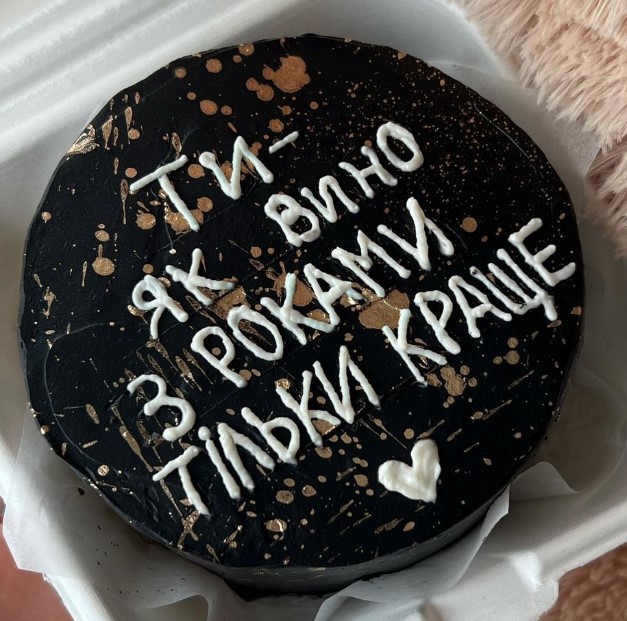 ТИ-
ЯК ВИНО
З РОКАМИ
ТІЛЬКИ КРАЩЕ